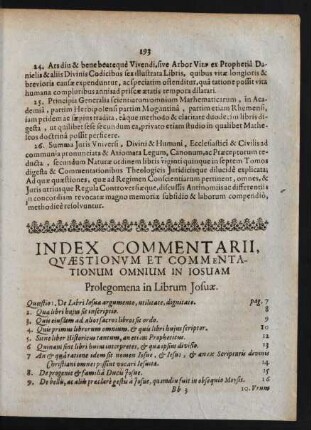 193
24. Ars diu & bene beateque Vivendi, sive Arbor Vitæ ex Prophetiâ Da-
nielis & aliis Divinis Codicibus sex illustrata Libris, quibus vitæ longioris &
brevioris causæ expenduntur, ac speciatim ostenditur, quâ ratione possit vita
humana compluribus annis ad priscæ ætatis tempora dilatari.
25. Principia Generalia scientiarum omnium Mathematicarum, in Aca-
demiâ, partim Herbipolensi partim Moguntinâ, partim etiam Rhemensi,
jam pridem ac sæpius tradita, eâque methodo & claritate duodecim libris di-
gesta, ut quilibet sese secundùm ea, privato etiam studio in qualibet Mathe-
seos doctrinâ possit exercere.
26. Summa Juris Universi, Divini & Humani, Ecclesiastici & Civilis ad
communia pronuntiata & Axiomata Legum, Canonumque Præceptorum re-
ducta, secundùm Naturæ ordinem libris viginti quinque in septem Tomos
digesta & Commentationibus Theologicis Juridicisque dilucidè explicata;
Ad quæ quæstiones, quæ ad Regimen Conscientiarum pertinent, omnes, &
Juris utriusque Regulæ Controversiæque, discussis Antinomiis ac differentiis
in concordiam revocatæ magno memoriæ subsidio & laborum compendio,
methodicè resolvuntur.
INDEX COMMENTARII,
QVÆSTIONVM ET COMMENTA-
TIONUM OMNIUM IN IOSUAM
Prolegomena in Librum Josuæ.
Quæstio 1. De Libri Iosua argumento, utilitate, dignitate. pag. 7
2. Qua libri hujus sit inscriptio. 8
3. Quis ejusdem ad alios sacros libros sit ordo. 9
4. Quis primus librorum omnium, & quis libri hujus scriptor. 10
5. Sitne liber Historicus tantum, an etiam Propheticus. 12
6. Quinam sint libri hujus interpretes, & qua ipsius divisio. 13
7 An & quâ ratione idem sit nomen Iosue, & Iesus; & an ex Scripturis divinis
Christiani omnes possint vocari Iesuita. 14
8. De progenie & familiâ Ducis Josue. 15
9. De bellu, ac aliis præclarè gestis à Josue, quamdiu fuit in obsequio Moysis. 16
Bb 3 10. Utrum